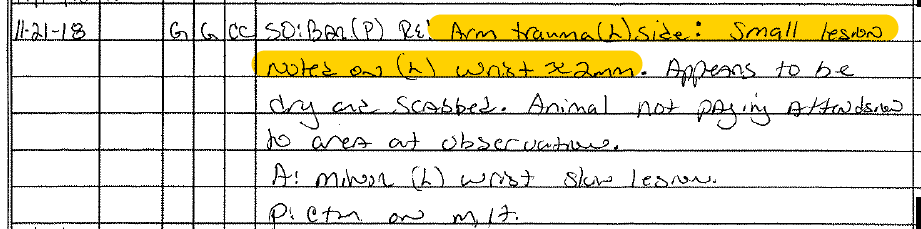 11-21-18 G G CC SO: BAR (P) RE: Arm trauma (L) side: Small lesion
noted on (L) wrist x 2mm. Appears to be
dry and scabbed. Animal not paying attention
to area at observation.
A: minor (L) wrist skin lesion.
P: CTM on